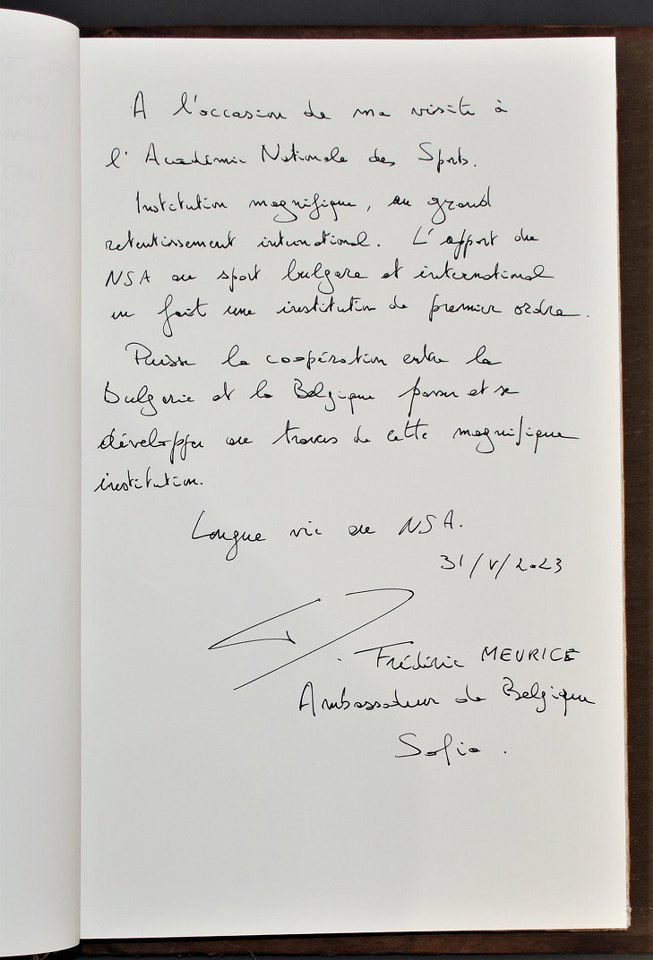 A l'occasion de ma visite à
l'Académie Nationale des Sports.
Institution magnifique, au grand
retentissement international. L'apport du
NSA au sport bulgare et international
en fait une institution de premier ordre.
Puisse la coopération entre la
Bulgarie et la Belgique passer et se
développer au travers de cette magnifique
institution.
Longue vie au NSA.
31/V/2023
Frédéric MEURICE
Ambassadeur de Belgique
Sofia.